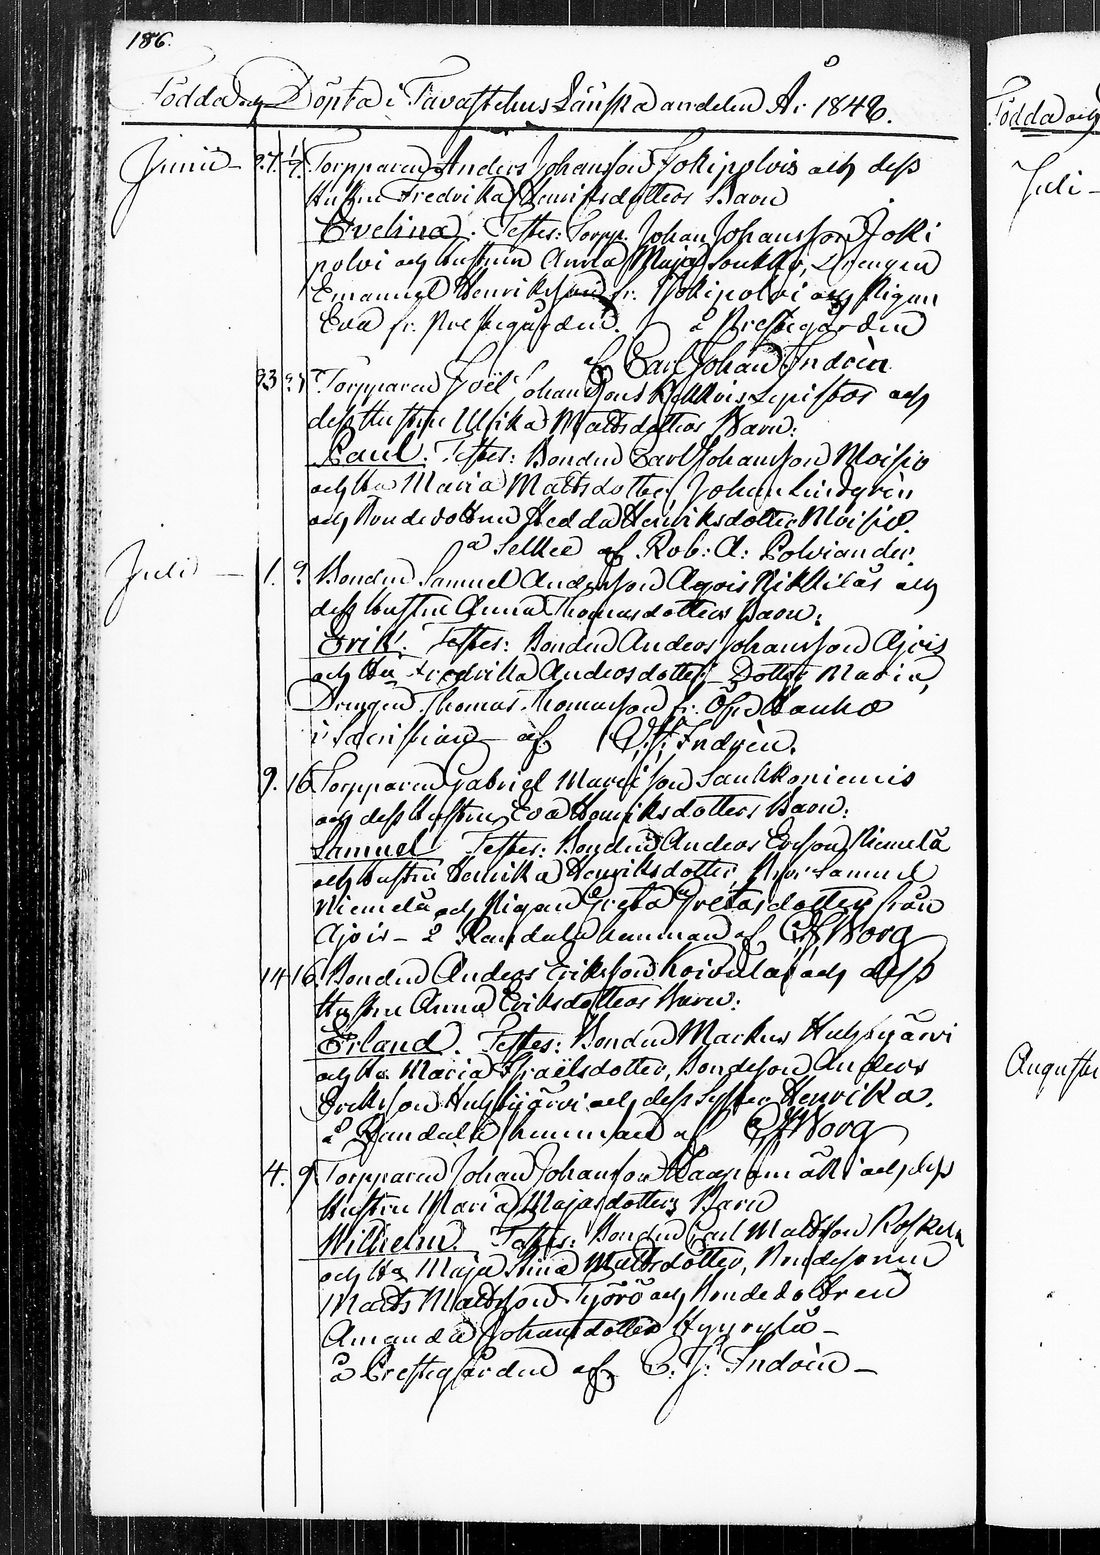 186.
Födda och Döpta i Tavastehus Länska andelen År 1846.
Junii 27. 1/7 Torpparen Anders Johansson Jokipolvis och dess
Hustru Fredrika Henriksdotters Barn
Evelina. Testes: Torpp. Johan Johansson Joki
polvi och hustrun Anna Maja Soukko, Drengen
Emanuel Henriksson fr. Jokipolvi och Pigan
Eva fr. Prestegården. å Prestegården
af Carl Johan Indrèn
23 Torpparen Joël Johanssons Lepistös och
dess Hustru Ulrika Mattsdotters Barn:
Paul. Testes: Bonden Carl Johansson Moisio
och Hu Maria Mattsdotter, Johan Lindgrèn
och Bondedottren Hedda Henriksdotter Moisio.
a Selkee af Rob: A: Polviander.
Juli 1. 2 Bonden Samuel Andersson Ajois Nikkilas och
dess hustru Anna Thomasdotters Barn:
Erik! Testes: Bonden Anders Johansson Ajois
och Hu Fredrika Andersdotter, Dotter Maria,
Drengen Thomas Thomasson fr. Öfre Hanho
i Sacristian af C. J. Indrèn.
9. 16 Torpparen Gabriel Samkoniemis
och dess Hustru Eva Henriksdotters Barn:
Samuel Testes: Bonden Anders Ersson Niemelä
och hustru Henrika Henriksdotter, Samuel
Niemelä och Pigan Greta Gretasdotter från
Ajois – å Randala hemman af C H Borg
14 16. Bonden Anders Eriksson Koivulas och dess
Hustru Anna Eriksdotters Barn:
Erland. Testes: Bonden Markus Huhtijärvi
och Hu Maria Israëlsdotter, Bondeson Anders
Eriksson Huhtijärvi och dess Syster Henrika.
å Randala hemman af C H Borg
4. 9 Torpparen Johan Johansson Haapamäki och dess
Hustru Maria Majasdotters Barn
Wilhelm. Testes: Bonden Carl Mattsson Roskela
och Hu Maja Stina Mattsdotter, Bondesonen
Matts Mattsson Työrö och Bondedottren
Amanda Johansdotter Hyyrylä –
å Prestegården af C. J. Indrèn –
Födda och
Juli –
Augusti